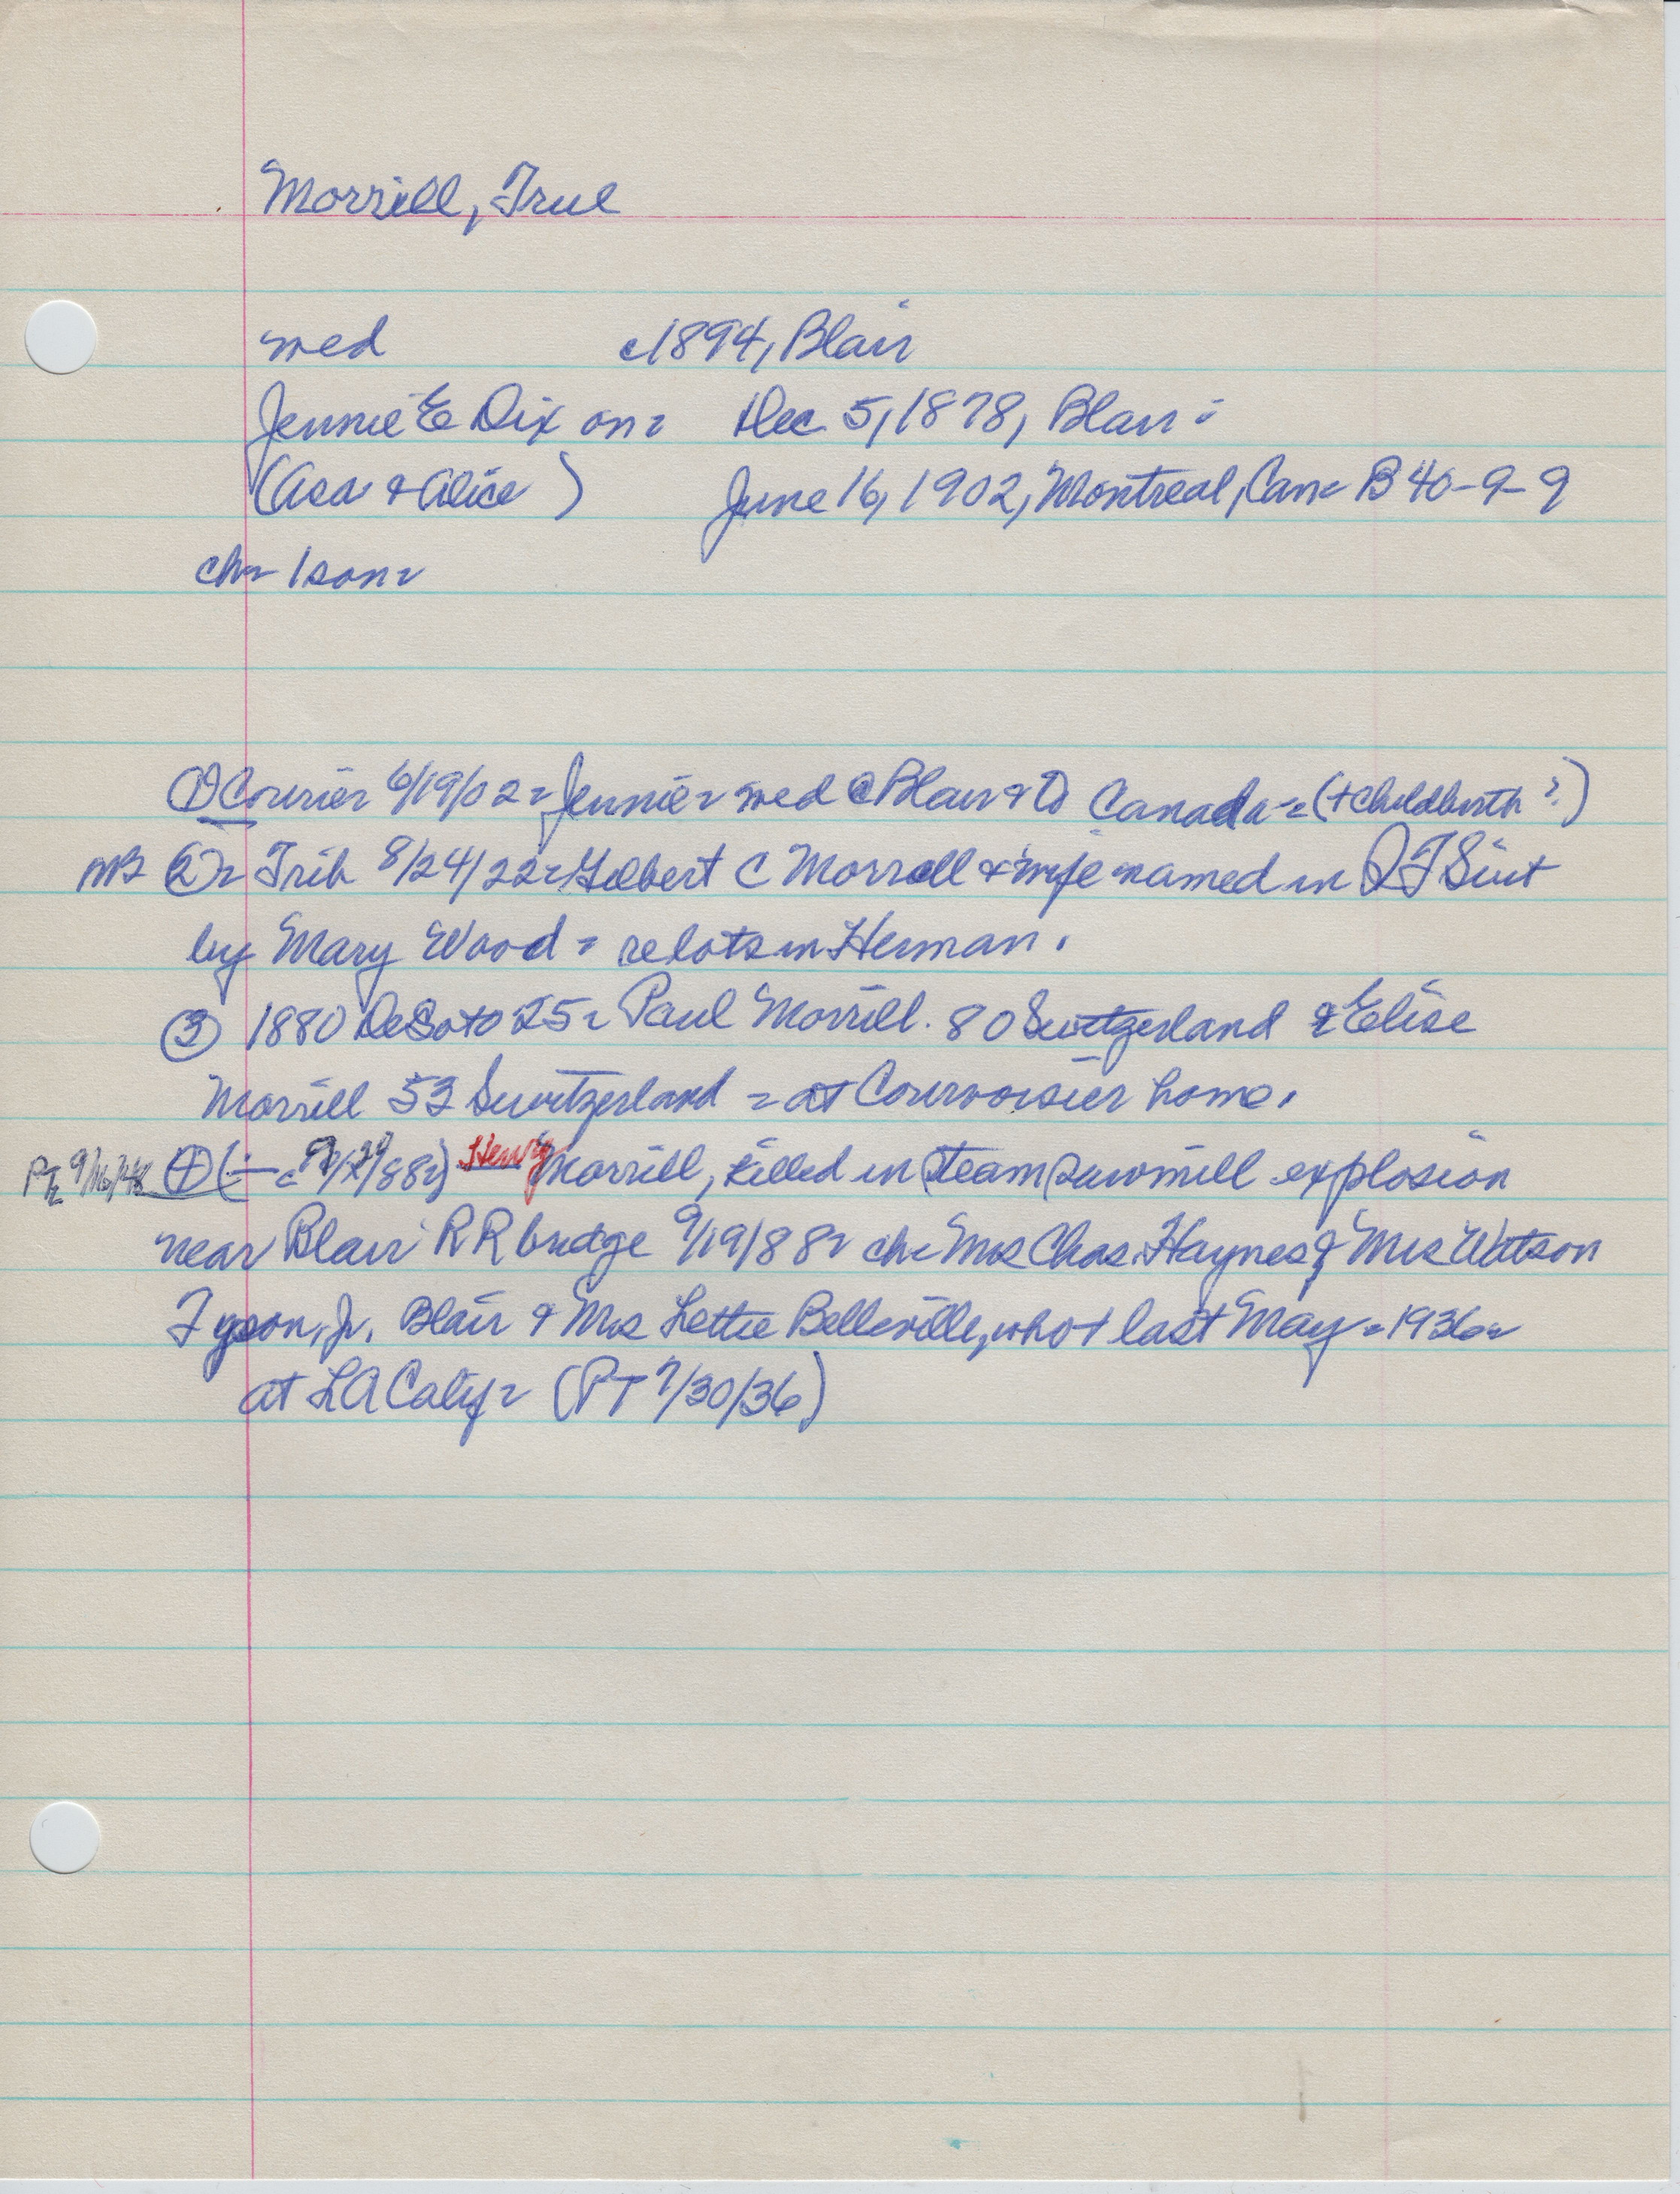 Morrill, True
wed c1894, Blair
Jennie E Dixon= Dec 5, 1878, Blair=
(Asa & Alice ) June 16, 1902, Montreal, Can= B 40-9-9
ch= 1 son=
① Courier 6/19/02= Jennie= wed @ Blair & to Canada= (+ childbirth?)
②= Trib 8/24/22= Gilbert C Morrell & wife named in QT Suit
by Mary Wood= re lots in Herman.
③ 1880 DeSoto 25= Paul Morrill. 80 Switzerland & Elise
Morrill 53 Switzerland = at Courvoisier home.
④ Henry Morrill, killed in steam sawmill explosion
near Blair RR bridge 9/19/88= ch= Mrs Chas. Haynes & Mrs Watson
Tyson, Jr. Blair & Mrs Lettie Belleville, who + last May=1936=
at LA Calif= (PT 7/30/36)